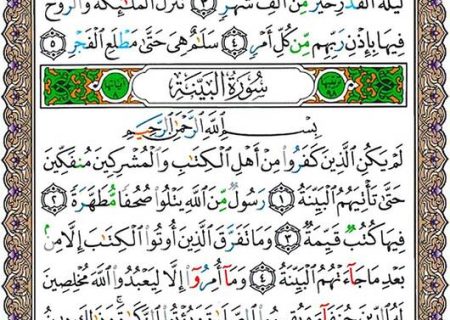 لَيْلَةُ الْقَدْرِ خَيْرٌ مِّنْ أَلْفِ شَهْرٍ ٣ تَنَزَّلُ الْمَلَٰٓئِكَةُ وَالرُّوحُ
فِيهَا بِإِذْنِ رَبِّهِم مِّن كُلِّ أَمْرٍ ٤ سَلَٰمٌ هِيَ حَتَّىٰ مَطْلَعِ الْفَجْرِ ٥
سُورَةُ البَيِّنَةِ
بِسْمِ اللَّهِ الرَّحْمَٰنِ الرَّحِيمِ
لَمْ يَكُنِ الَّذِينَ كَفَرُوا۟ مِنْ أَهْلِ الْكِتَٰبِ وَالْمُشْرِكِينَ مُنفَكِّينَ
حَتَّىٰ تَأْتِيَهُمُ الْبَيِّنَةُ ١ رَسُولٌ مِّنَ اللَّهِ يَتْلُوا۟ صُحُفًا مُّطَهَّرَةً ٢
فِيهَا كُتُبٌ قَيِّمَةٌ ٣ وَمَا تَفَرَّقَ الَّذِينَ أُوتُوا۟ الْكِتَٰبَ إِلَّا مِنۢ
بَعْدِ مَا جَآءَتْهُمُ الْبَيِّنَةُ ٤ وَمَآ أُمِرُوٓا۟ إِلَّا لِيَعْبُدُوا۟ اللَّهَ مُخْلِصِينَ
لَهُ الدِّينَ حُنَفَآءَ وَيُقِيمُوا۟ الصَّلَوٰةَ وَيُؤْتُوا۟ الزَّكَوٰةَ ۚ وَذَٰلِكَ دِينُ